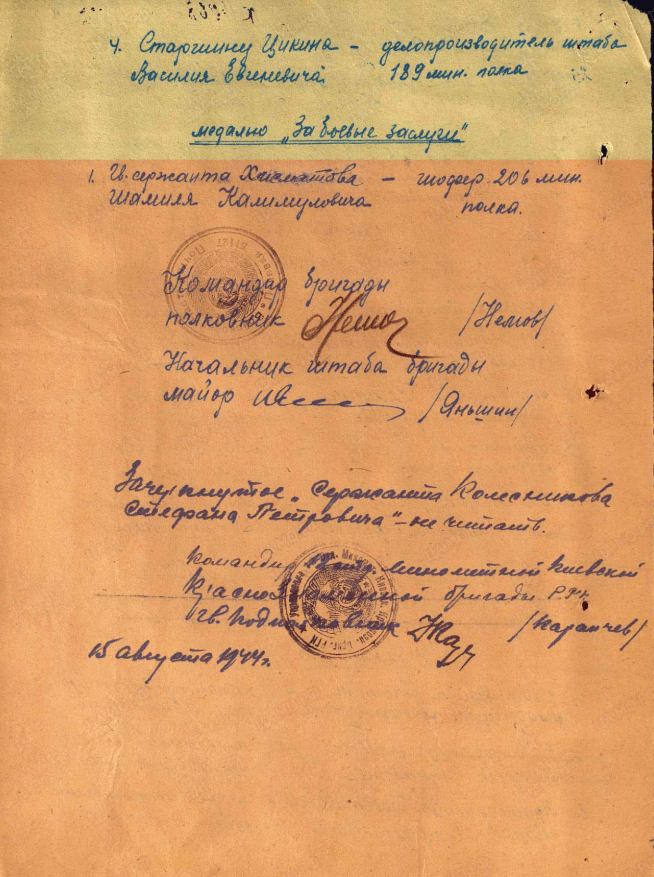 4. Старшину Цикина – делопроизводитель штаба
Василия Евгеневича 189 мин. полка
медалью „За боевые заслуги"
1. Гв. сержанта – шофер 206 мин.
Шамиля Калимуловича полка.
Командир бригады
полковник /Немов/
Начальник штаба бригады
майор /Яньшин/
Зачеркнутое „Сержанта Колесникова
Стефана Петровича" – не читать.
Командир минометной Киевской
Краснознаменной бригады РГК
гв. подполковник /Карачев/
15 августа 1944 г.